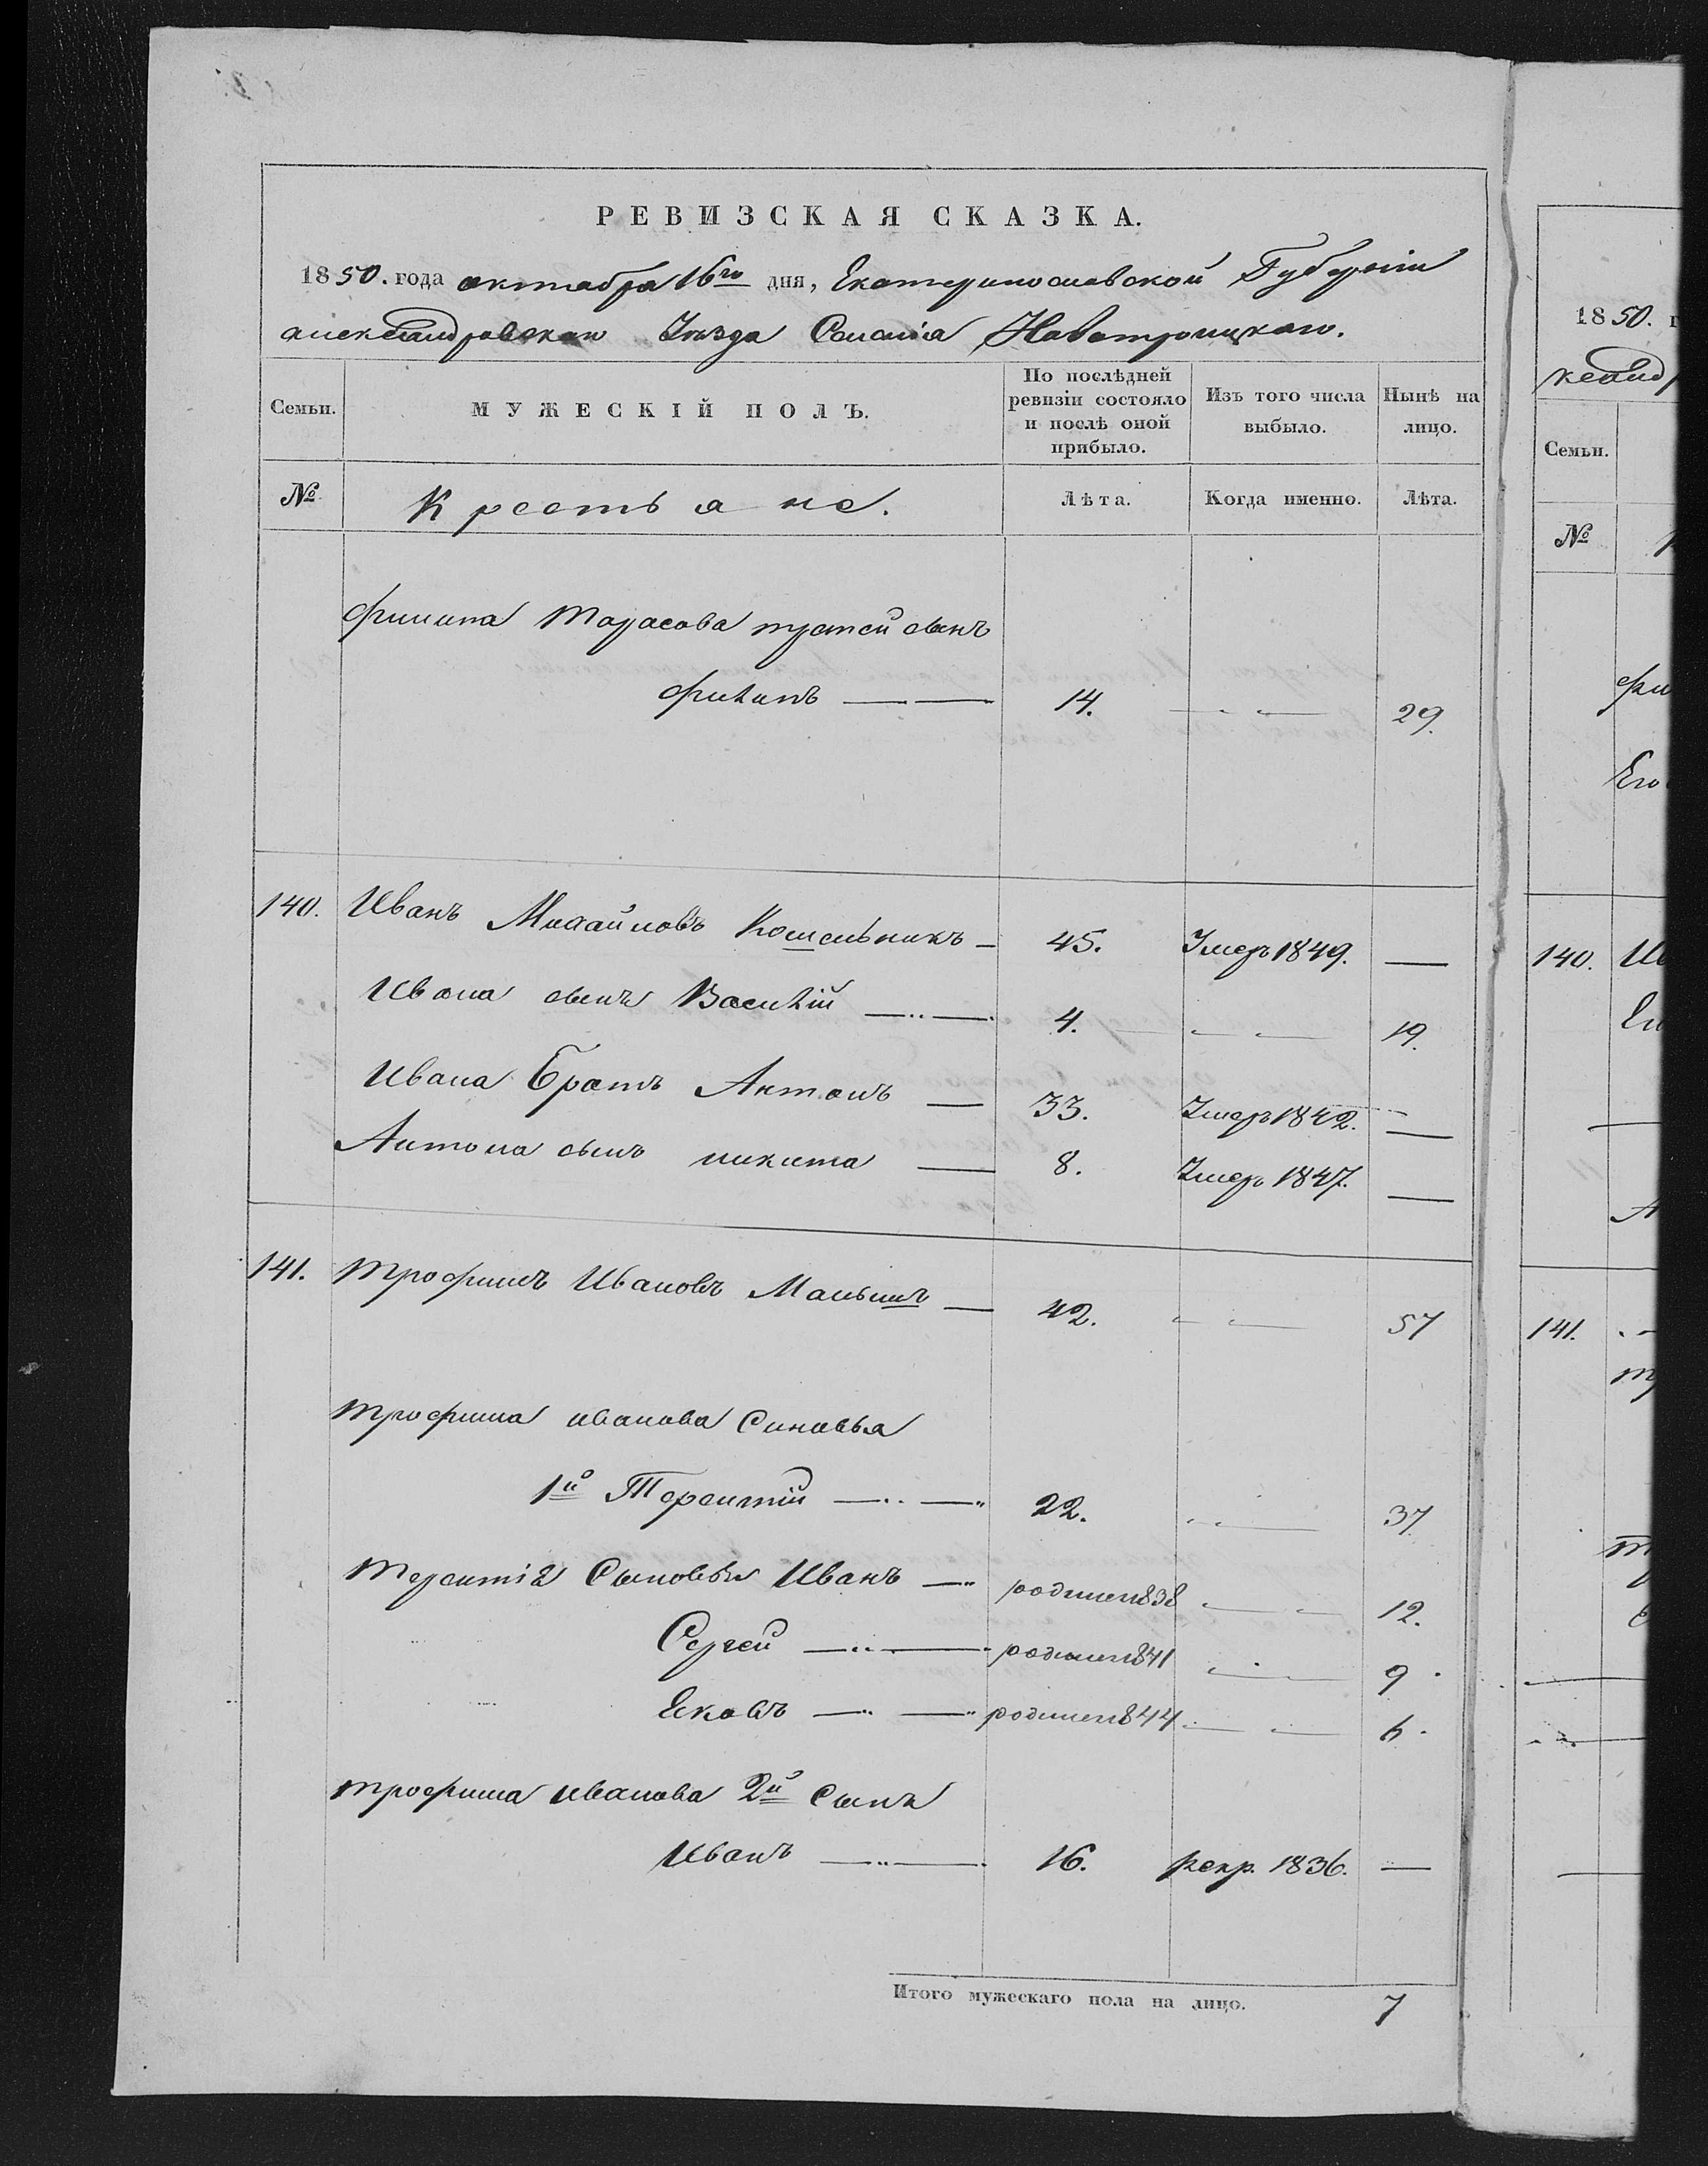 РЕВИЗСКАЯ СКАЗКА.
1850. года октября 16го дня, Екатеринославской Губернiи
александровскаго Уѣзда Селенiя Новотроицкаго.
Семьи.
МУЖЕСКІЙ ПОЛЪ.
По послѣдней ревизіи состояло и послѣ оной прибыло.
Изъ того числа выбыло.
Нынѣ на лицо.
№
Крестьяне.
Лѣта.
Когда именно.
Лѣта.
Филипа Тарасова третей сынъ
Филипъ 14. 29.
140. Иванъ Михайловъ Кошельникъ 45. Умеръ 1849.
Ивана сынъ Василiй 4. 19.
Ивана Братъ Антонъ 33. Умеръ 1842.
Антона сынъ никита 8. Умеръ 1847.
141. Трофимъ Ивановъ Малышъ 42. 57
Трофима иванова Синовья
1й Терентiй 22. 37
Терентiя Сыновья Иванъ родился 1838 12.
Сергей родился 1841 9.
Яковъ родился 1844 6.
Трофима иванова 2й Сынъ
Иванъ 16. рекр. 1836.
Итого мужескаго пола на лицо. 7
1850. г
Семьи.
№
140. Ив
141.